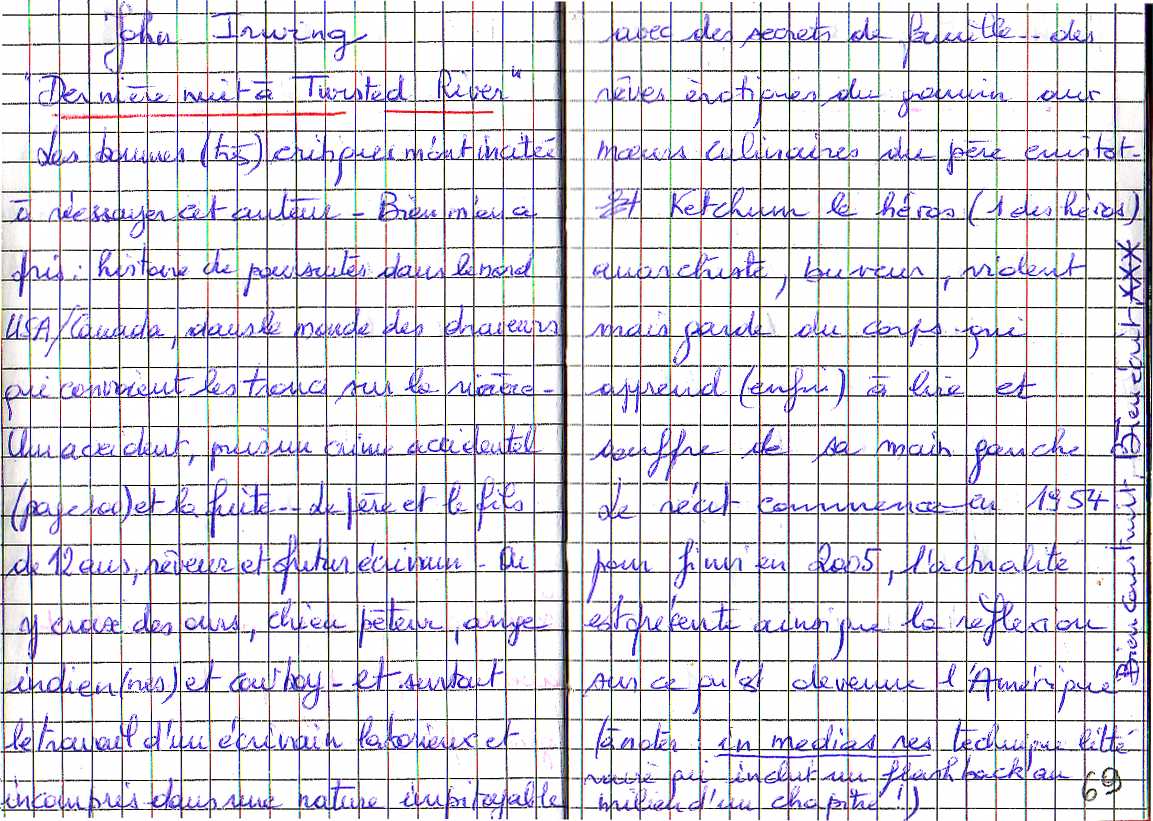 John Irwing
"Dernière nuit à Twisted River"
Les bonnes (très) critiques m'ont incitée
à réessayer cet auteur - Bien m'en a
pris : histoire de poursuites dans le nord
USA/Canada, dans le monde des draveurs
qui convoient les troncs sur la rivière -
Un accident, puis un crime accidentel
et la fuite -- le père et le fils
de 12 ans, rêveur et futur écrivain - On
y croise des ours, chien péteur, ange
indien(nes) et cow boy - et surtout
le travail d'un écrivain laborieux et
incompris dans une nature impitoyable
avec des secrets de famille -- des
rêves érotiques du gamin aux
mœurs culinaires du père cuistot -
Et Ketchum le héros (1 des héros)
anarchiste, buveur, violent
mais garde du corps qui
apprend (enfin) à lire et
souffre de sa main gauche
Le récit commence en 1954
pour finir en 2005, l'actualité
est présente ainsi que la réflexion
sur ce qu'est devenue l'Amérique
(à noter : in medias res technique litté
raire qui inclut un flashback au
milieu d'un chapitre !)
69
Bien construit, Bien écrit, XXX